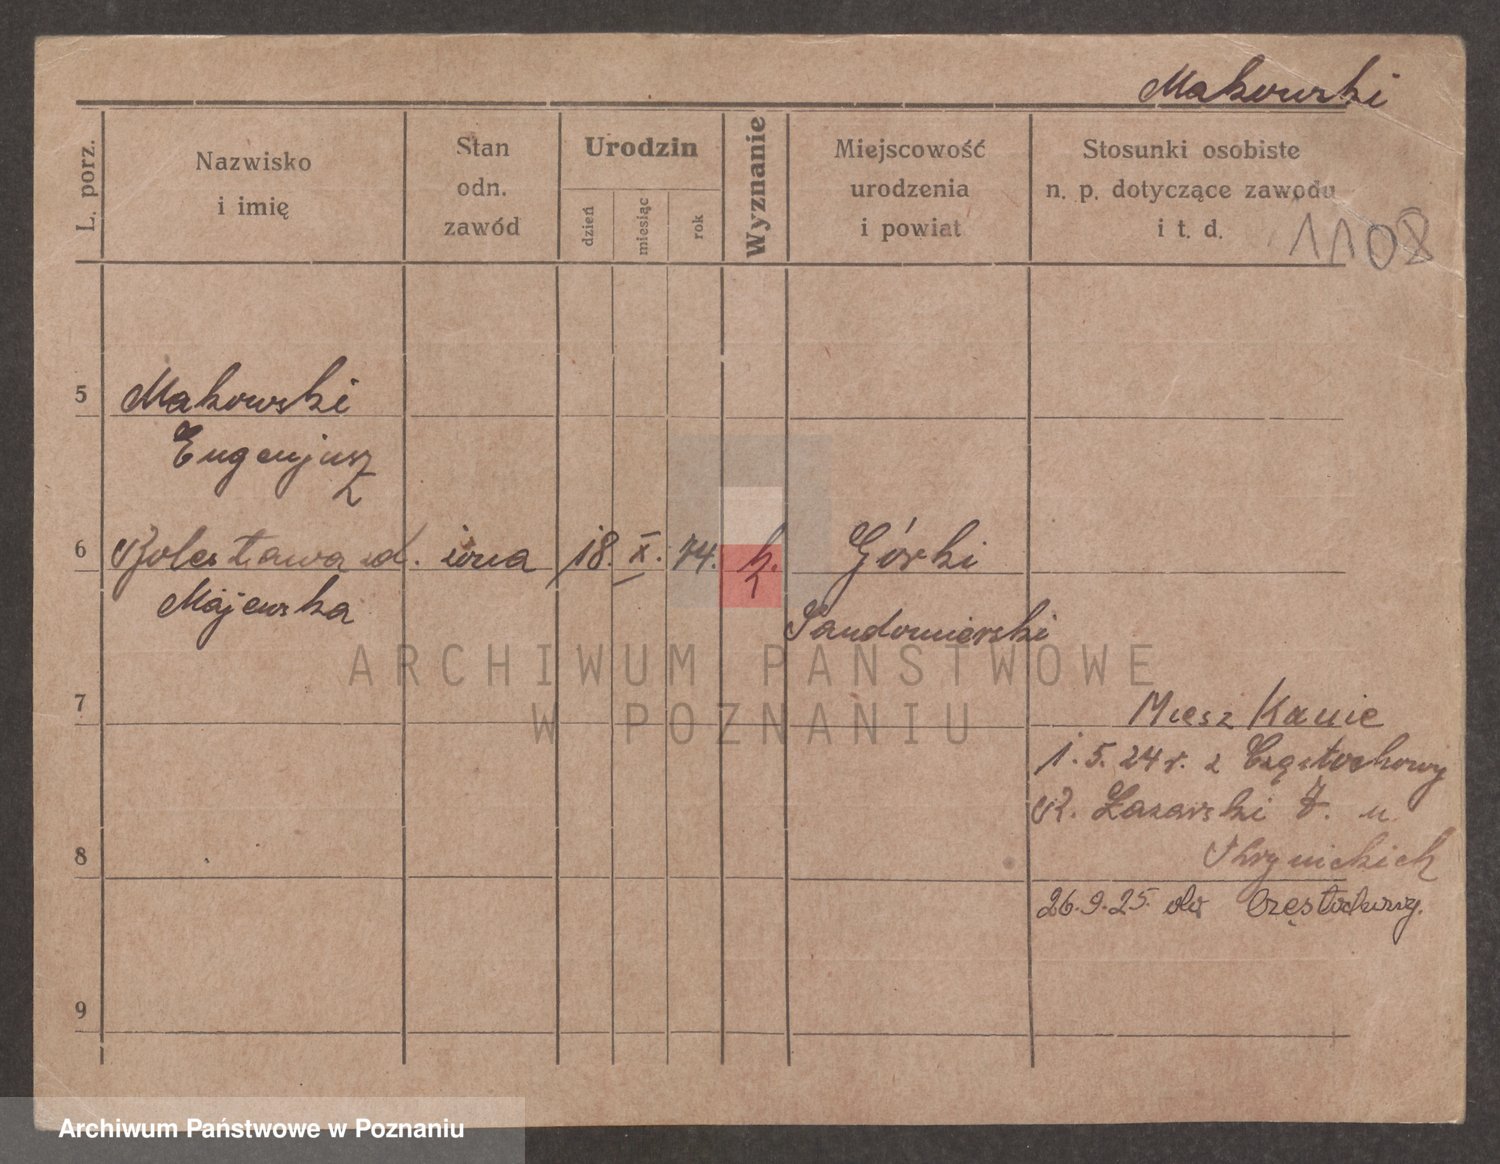 Makowski
L. porz.
Nazwisko
i imię
Stan
odn.
zawód
Urodzin
dzień
miesiąc
rok
Wyznanie
Miejscowość
urodzenia
i powiat
Stosunki osobiste
n. p. dotyczące zawodu
i t. d.
1108
5
Makowski
Eugenjusz
6
Bolesława d. żona 18. X. 74. k. Górki
Majewska
Sandomierski
ARCHIWUM PAŃSTWOWE
W POZNANIU
7
Miesz Kanie
1.5.24 r. z Częstochowy
R. Łazarski 7. u
8
26.9.25. do Częstochowy.
9
Archiwum Państwowe w Poznaniu